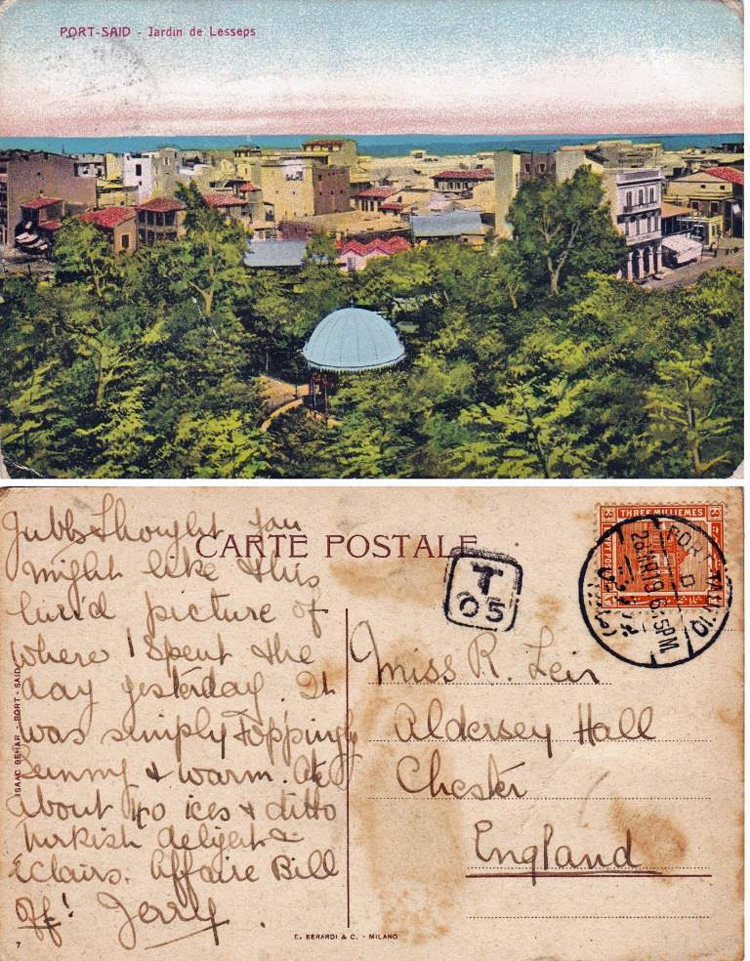 PORT-SAID - Jardin de Lesseps
CARTE POSTALE
thought you
might like this
lurid picture of
where I spent the
day yesterday. It
was simply toppingly
Sunny & warm. Ate
about 40 ices & ditto
turkish delight &
Eclairs. Affaire Bill
off! Jerry.
T
05
THREE MILLIEMES
EGYPT POSTAGE
PORT TAUFIQ
D
28 MR 19 6:15 PM
Miss R. Leir
Aldersey Hall
Chester
England
ISAAC BEHAR - PORT-SAID
E. BERARDI & C. - MILANO
7